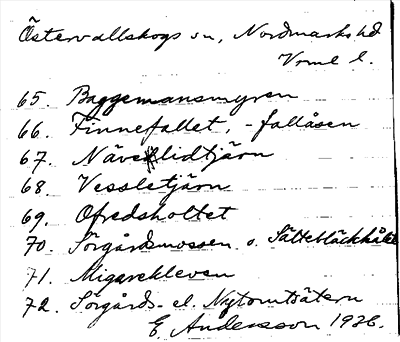 Östervallskogs sn, Nordmarks hd
Vrml l.
65. Baggemansmyren
66. Finnefallet, -fallåsen
67. Näverlidtjärn
68. Vessletjärn
69. Ofredsholtet
70. Sörgårdsmossen o. Sättebläckhålet
71. Migareklevен
72. Sörgårds- el. Nytomtsätern
E. Andersson 1926.